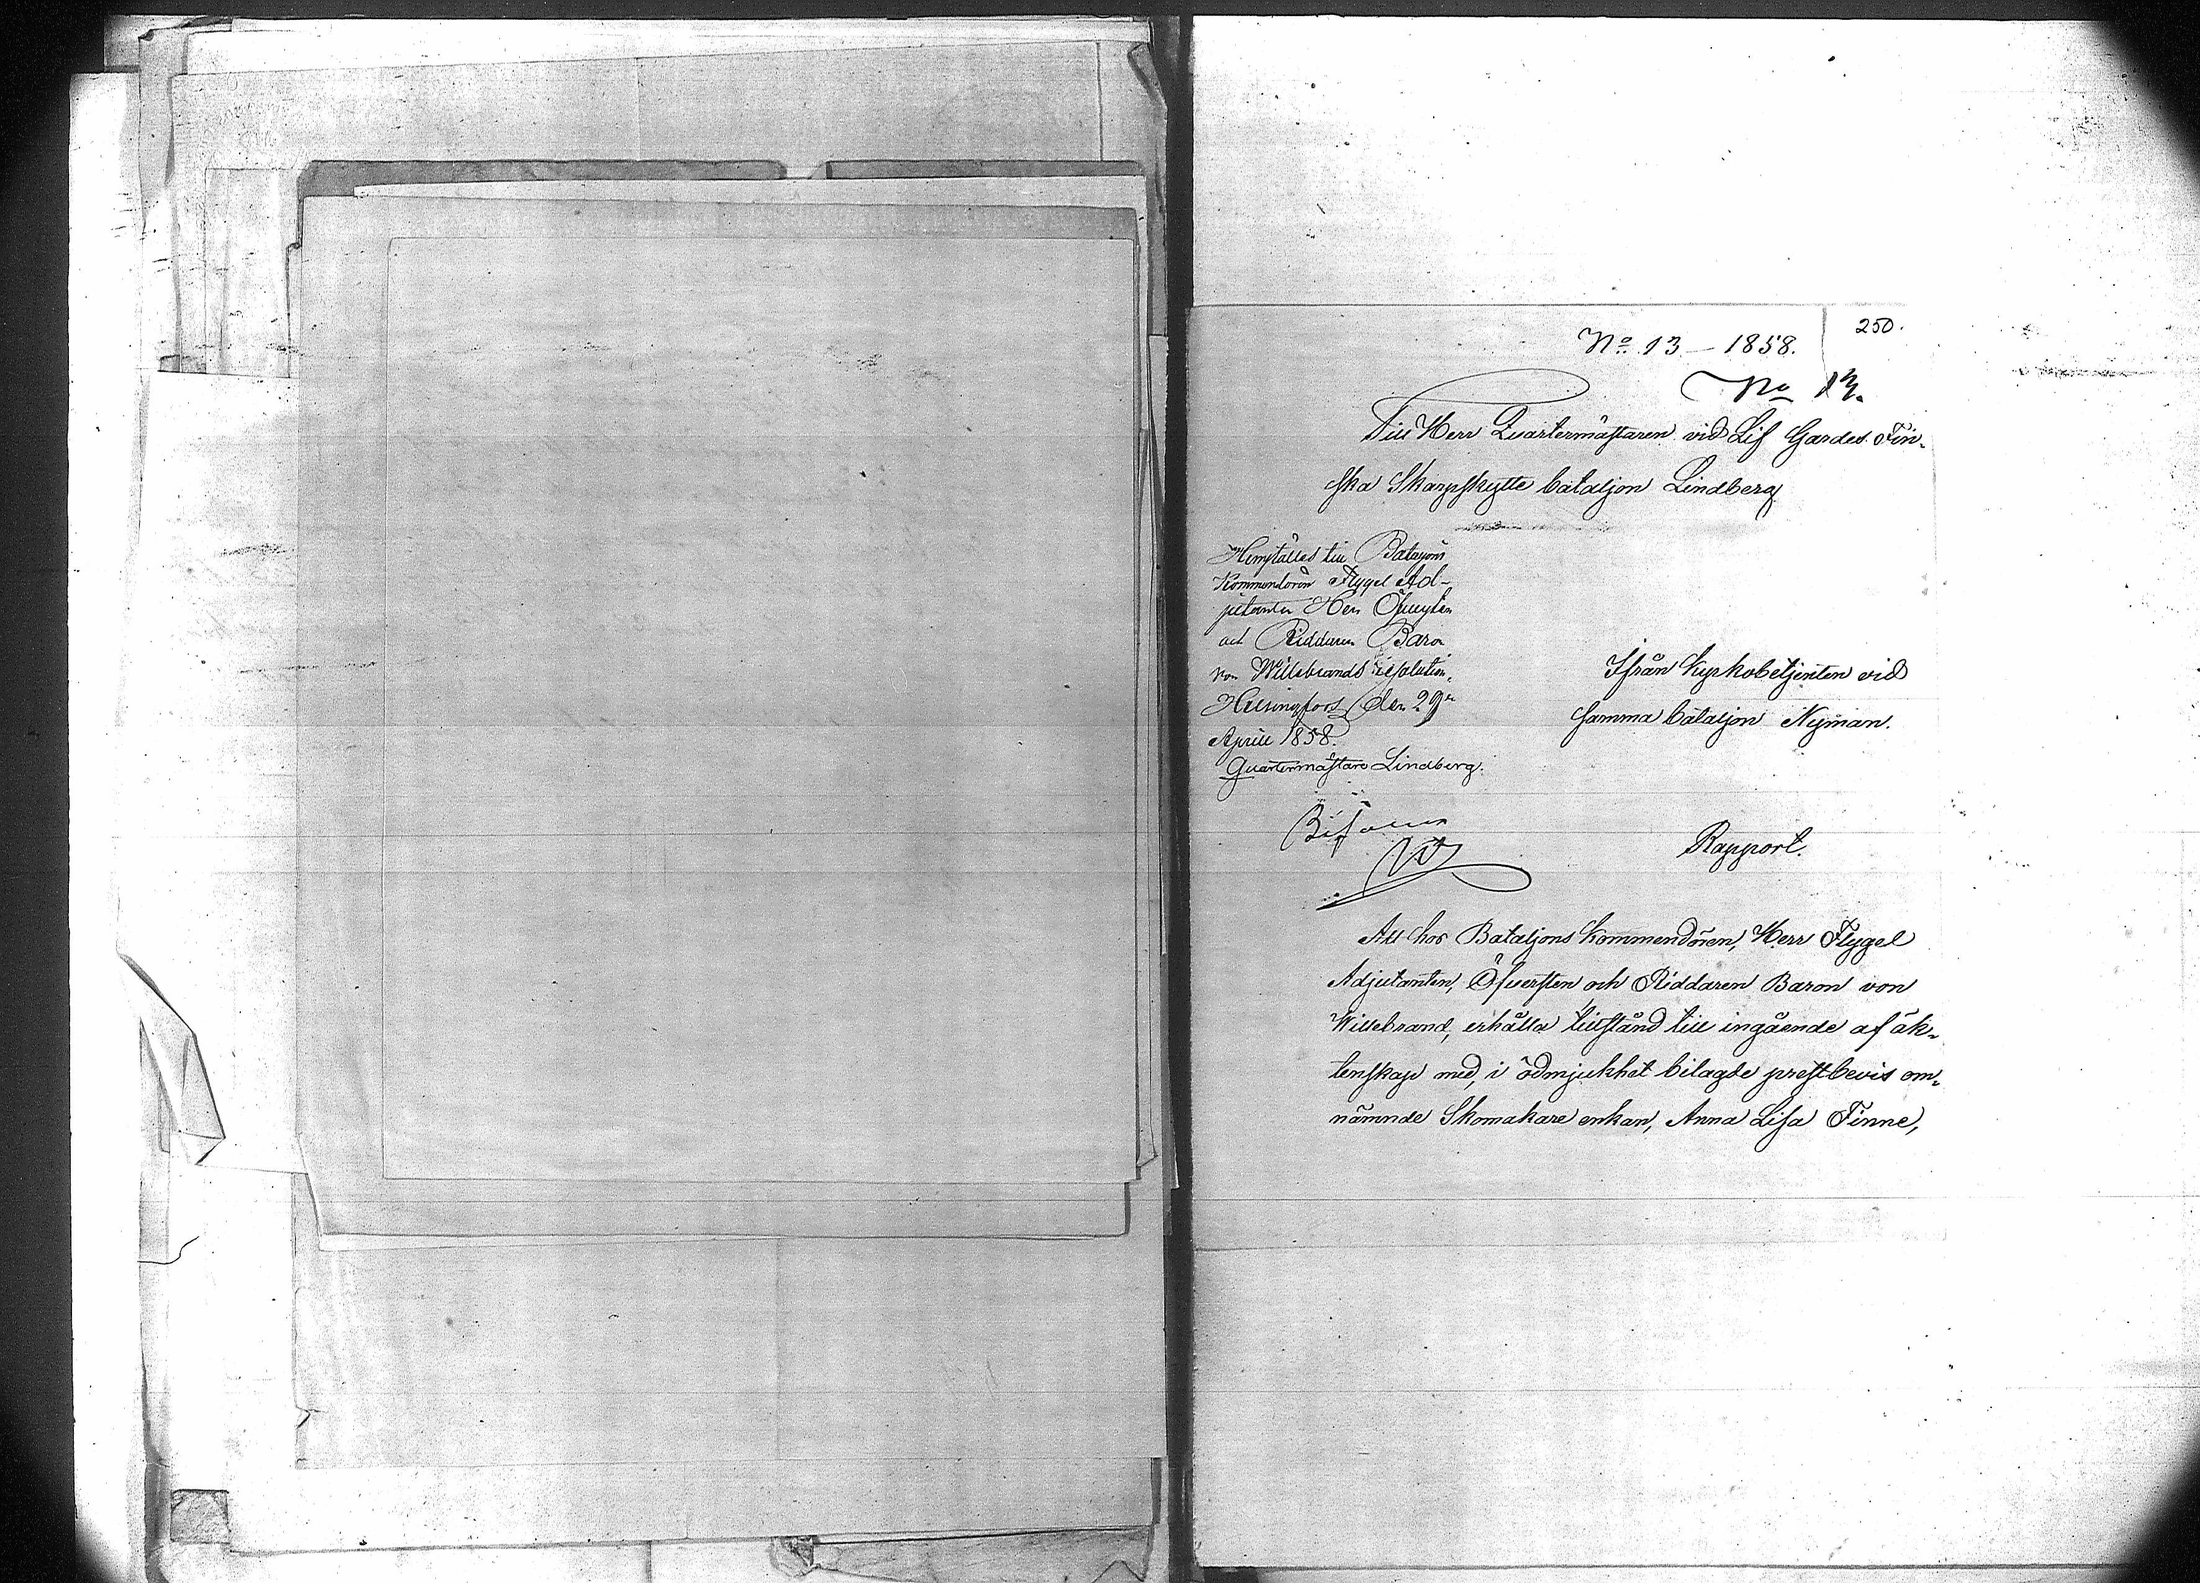 250.
No 13 – 1858.
No 13.
Till Herr Quartermästaren vid Lif Gardes Fin-
ska Skarpskytte bataljon Lindberg
Hemställes till Bataljons
Kommendören Flygel Ad-
jutanten Herr Öfversten
och Riddaren Baron
von Willebrands resolution.
Helsingfors den 29de
Aprill 1858.
Quartermästare Lindberg.
Ifrån Kyrkobetjenten vid
samma bataljon Nyman.
Bifalles
W
Rapport.
Att hos Bataljons Kommendören, Herr Flygel
Adjutanten, Öfversten och Riddaren Baron von
Willebrand, erhålla tillstånd till ingående af äk-
tenskap med, i ödmjukhet bilagde prestbevis om-
nämnde Skomakare enkan, Anna Lisa Finne,